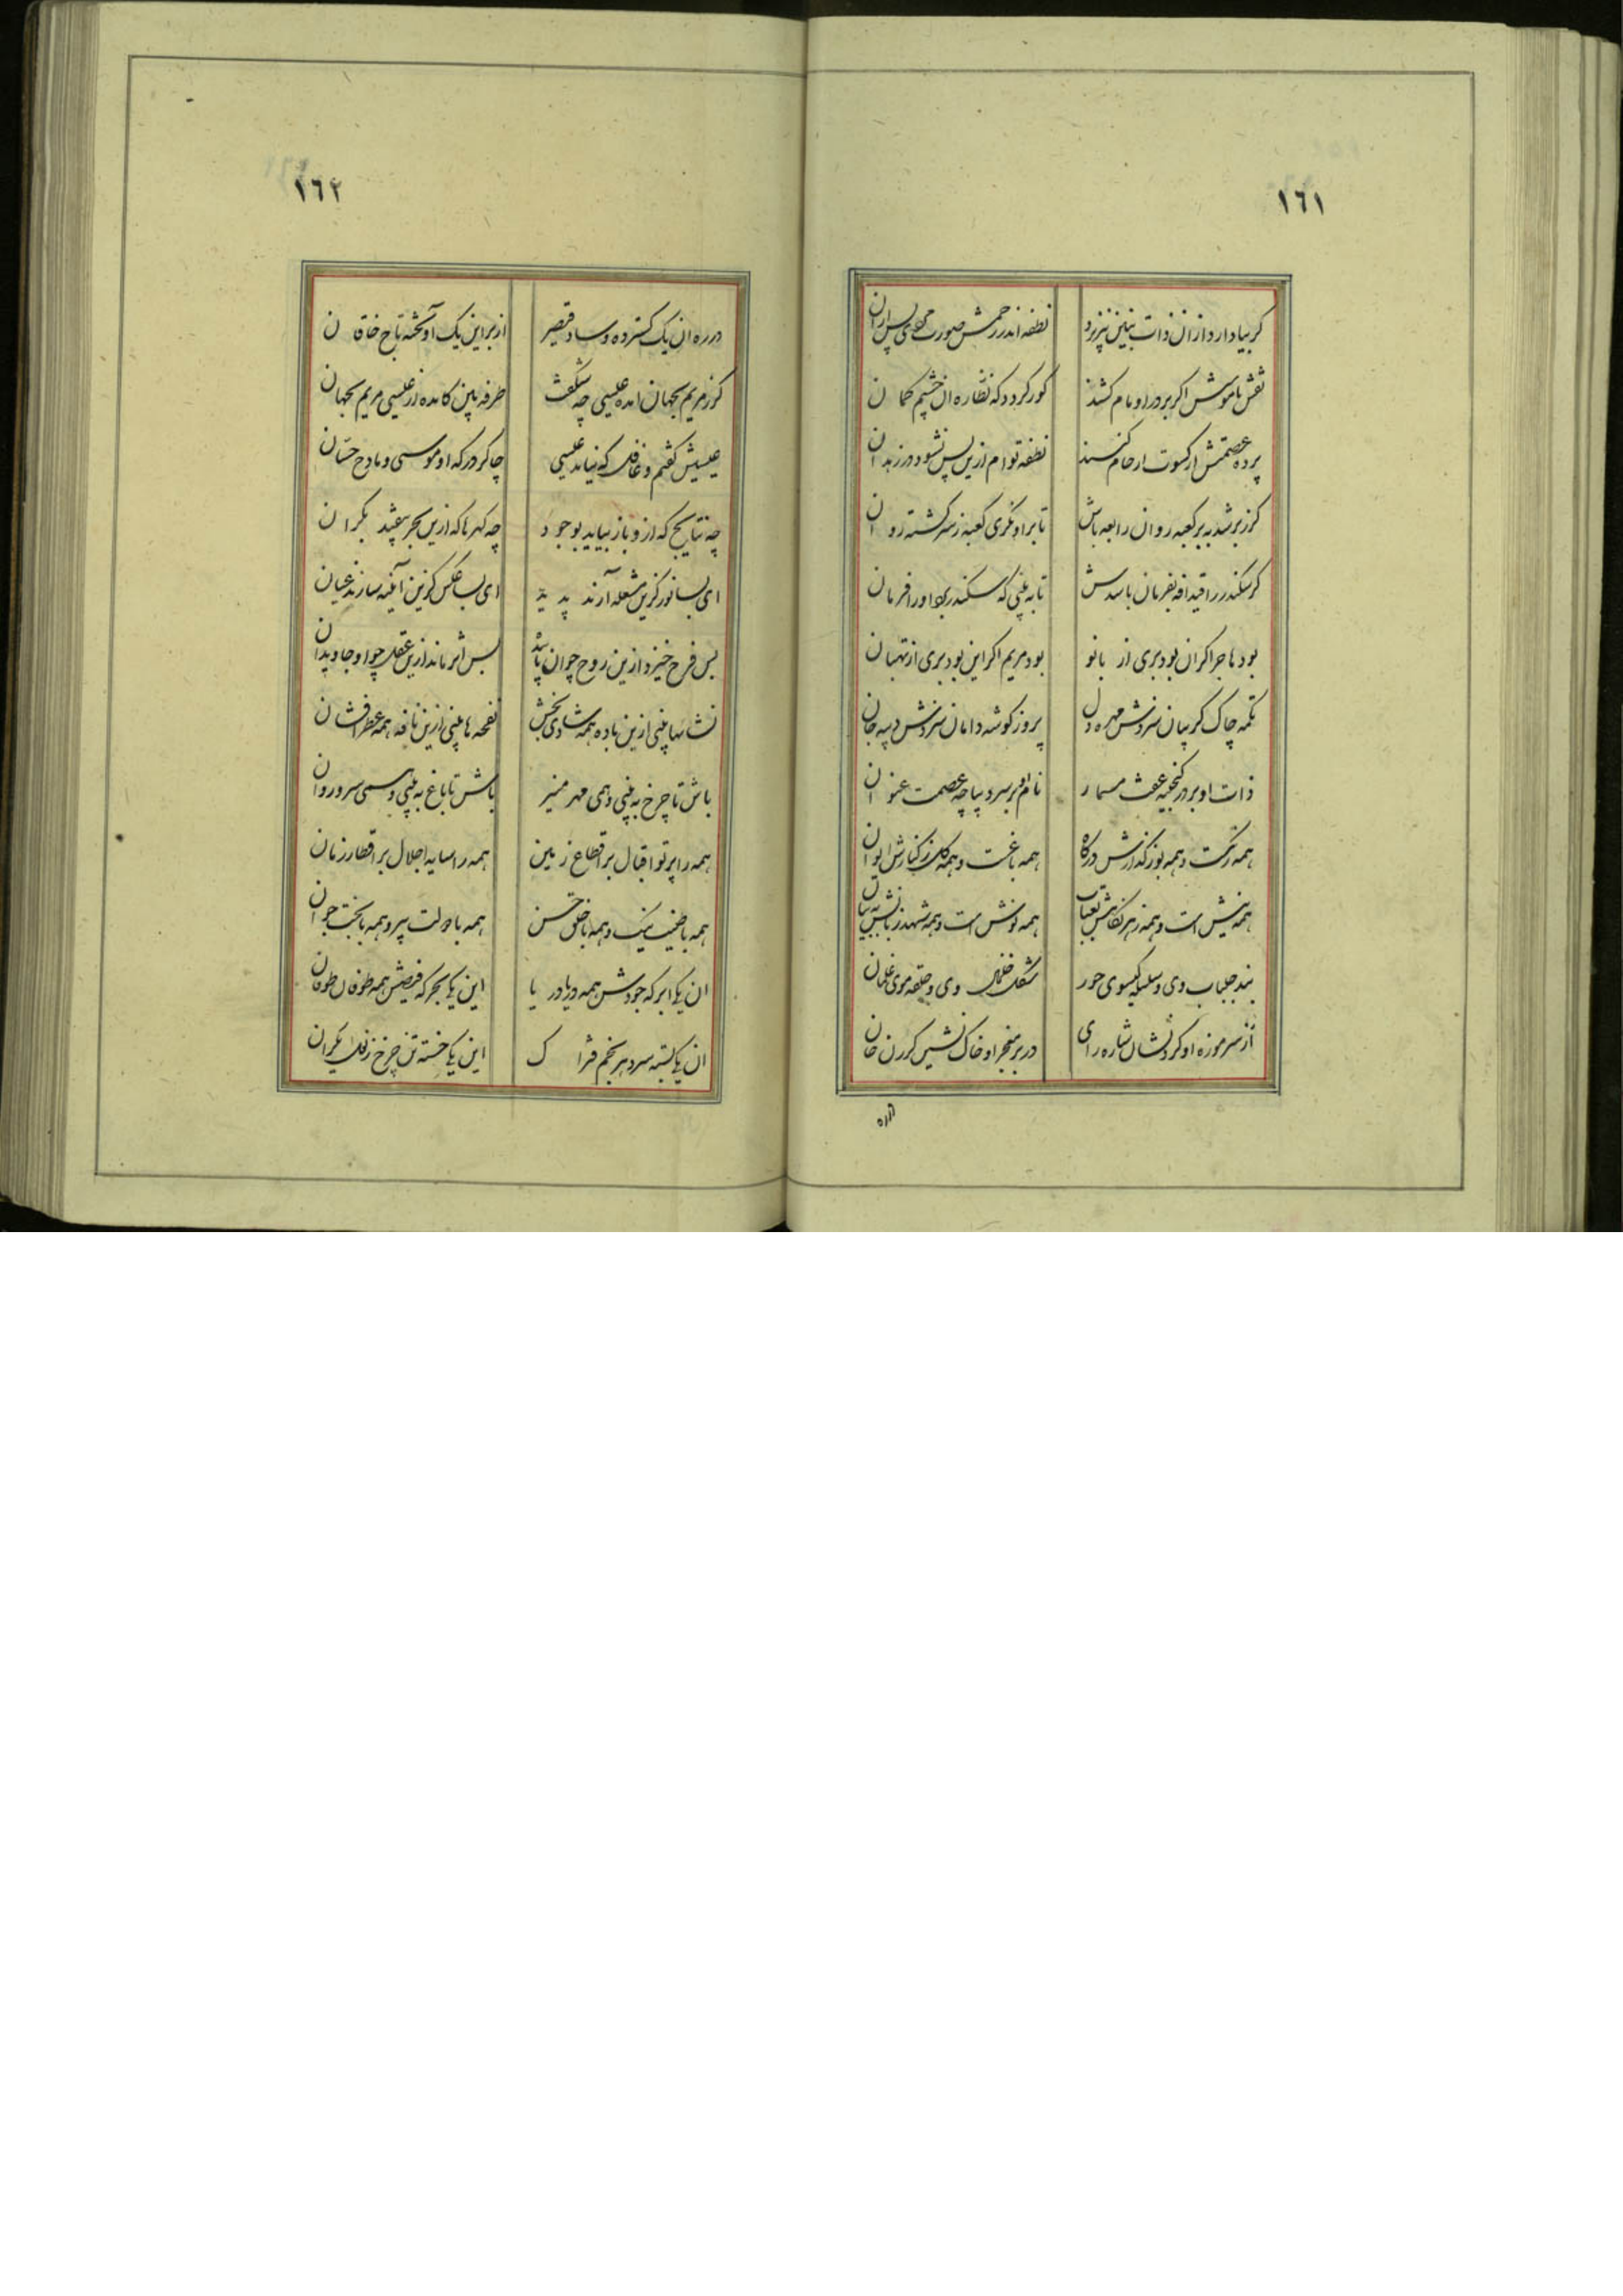 ١٦١
کر بیاد ارد از ان ذات بنین نپزیرد نطفه اندر رحمش صورت
نقش ناموسش اکر بر در او نام کشند کور کردد که نظاره ان خشم کما ن
پرده عصمتش ار کسوت ارحام کنند نطفه توام ازین پس نشود در زهدا ن
کرز بر شد به بر کعبه روان رابعه باش تا بر او نکری کعبه ز سر کشته روا ن
کر سکندر را قیدافه بفرمان باشدش تا به بینی که سکندر بود او را فرمان
بود هاجر اکر ان بود بری از بانو بود مریم اکر این بود بری از بهتان
تکمه چاک کریبان سزدش مهره دل پروز کوشه دامان سزدش دیبه جان
ذات او بر در کنجینه عفت مسما ر نام او بر سر دیباچه عصمت عنوا ن
همه رنکست و همه بو ز کذارش درکاه همه باغست و همه کل ز کنارش ایوا ن
همه نیش است و همه زهر نقاب همه نوش است و همه شهد ز بیان
بند جلباب وی و سلسله کیسوی حور شکل خلخال وی و حلقه موی غلمان
از سر موزه او کرد نشان شاره رای در بر معجر او خاک نشین کرزن خان
١٦٢
در ره ان یک کسترده وساد قیصر از بر این یک آویخته تاج خاقا ن
کرز مریم بجهان امده عیسی چه شکفت طرفه بین کامده از عیسی مریم بجهان
عیسیش کفتم و غافل که نیاید عیسی چاکر درکه او موسی و مادح حسان
چه نتایج که ازو باز بیاید بوجو د چه کهرها که ازین بحر بیفتد بکرا ن
ای بسا نور کزین شعله آرند پدید ای بسا عکس کزین آینه سازند عیان
بس فرح خیزد ازین روح جوان بس اثر ماند ازین عقل جاویدان
نشاءها بینی ازین باده همه شادی بخش نفحه ها بینی ازین نافه همه عطر افشا ن
باش تا چرخ به بینی و همی مهر منیر باش تا باغ به بینی و سهی سرو روان
همه را پرتو اقبال بر اقطاع زمین همه را سایه اجلال بر اقطار زمان
همه با طینت نیک و همه با خلق حسن همه با دولت پیر و همه با بخت جوان
ان یکی ابر که جودش همه دریا دریا این یکی بحر که فیضش همه طوفان طوفان
ان یکی بسته سر دهر بخم فترا ک این یکی خسته تن چرخ یکران